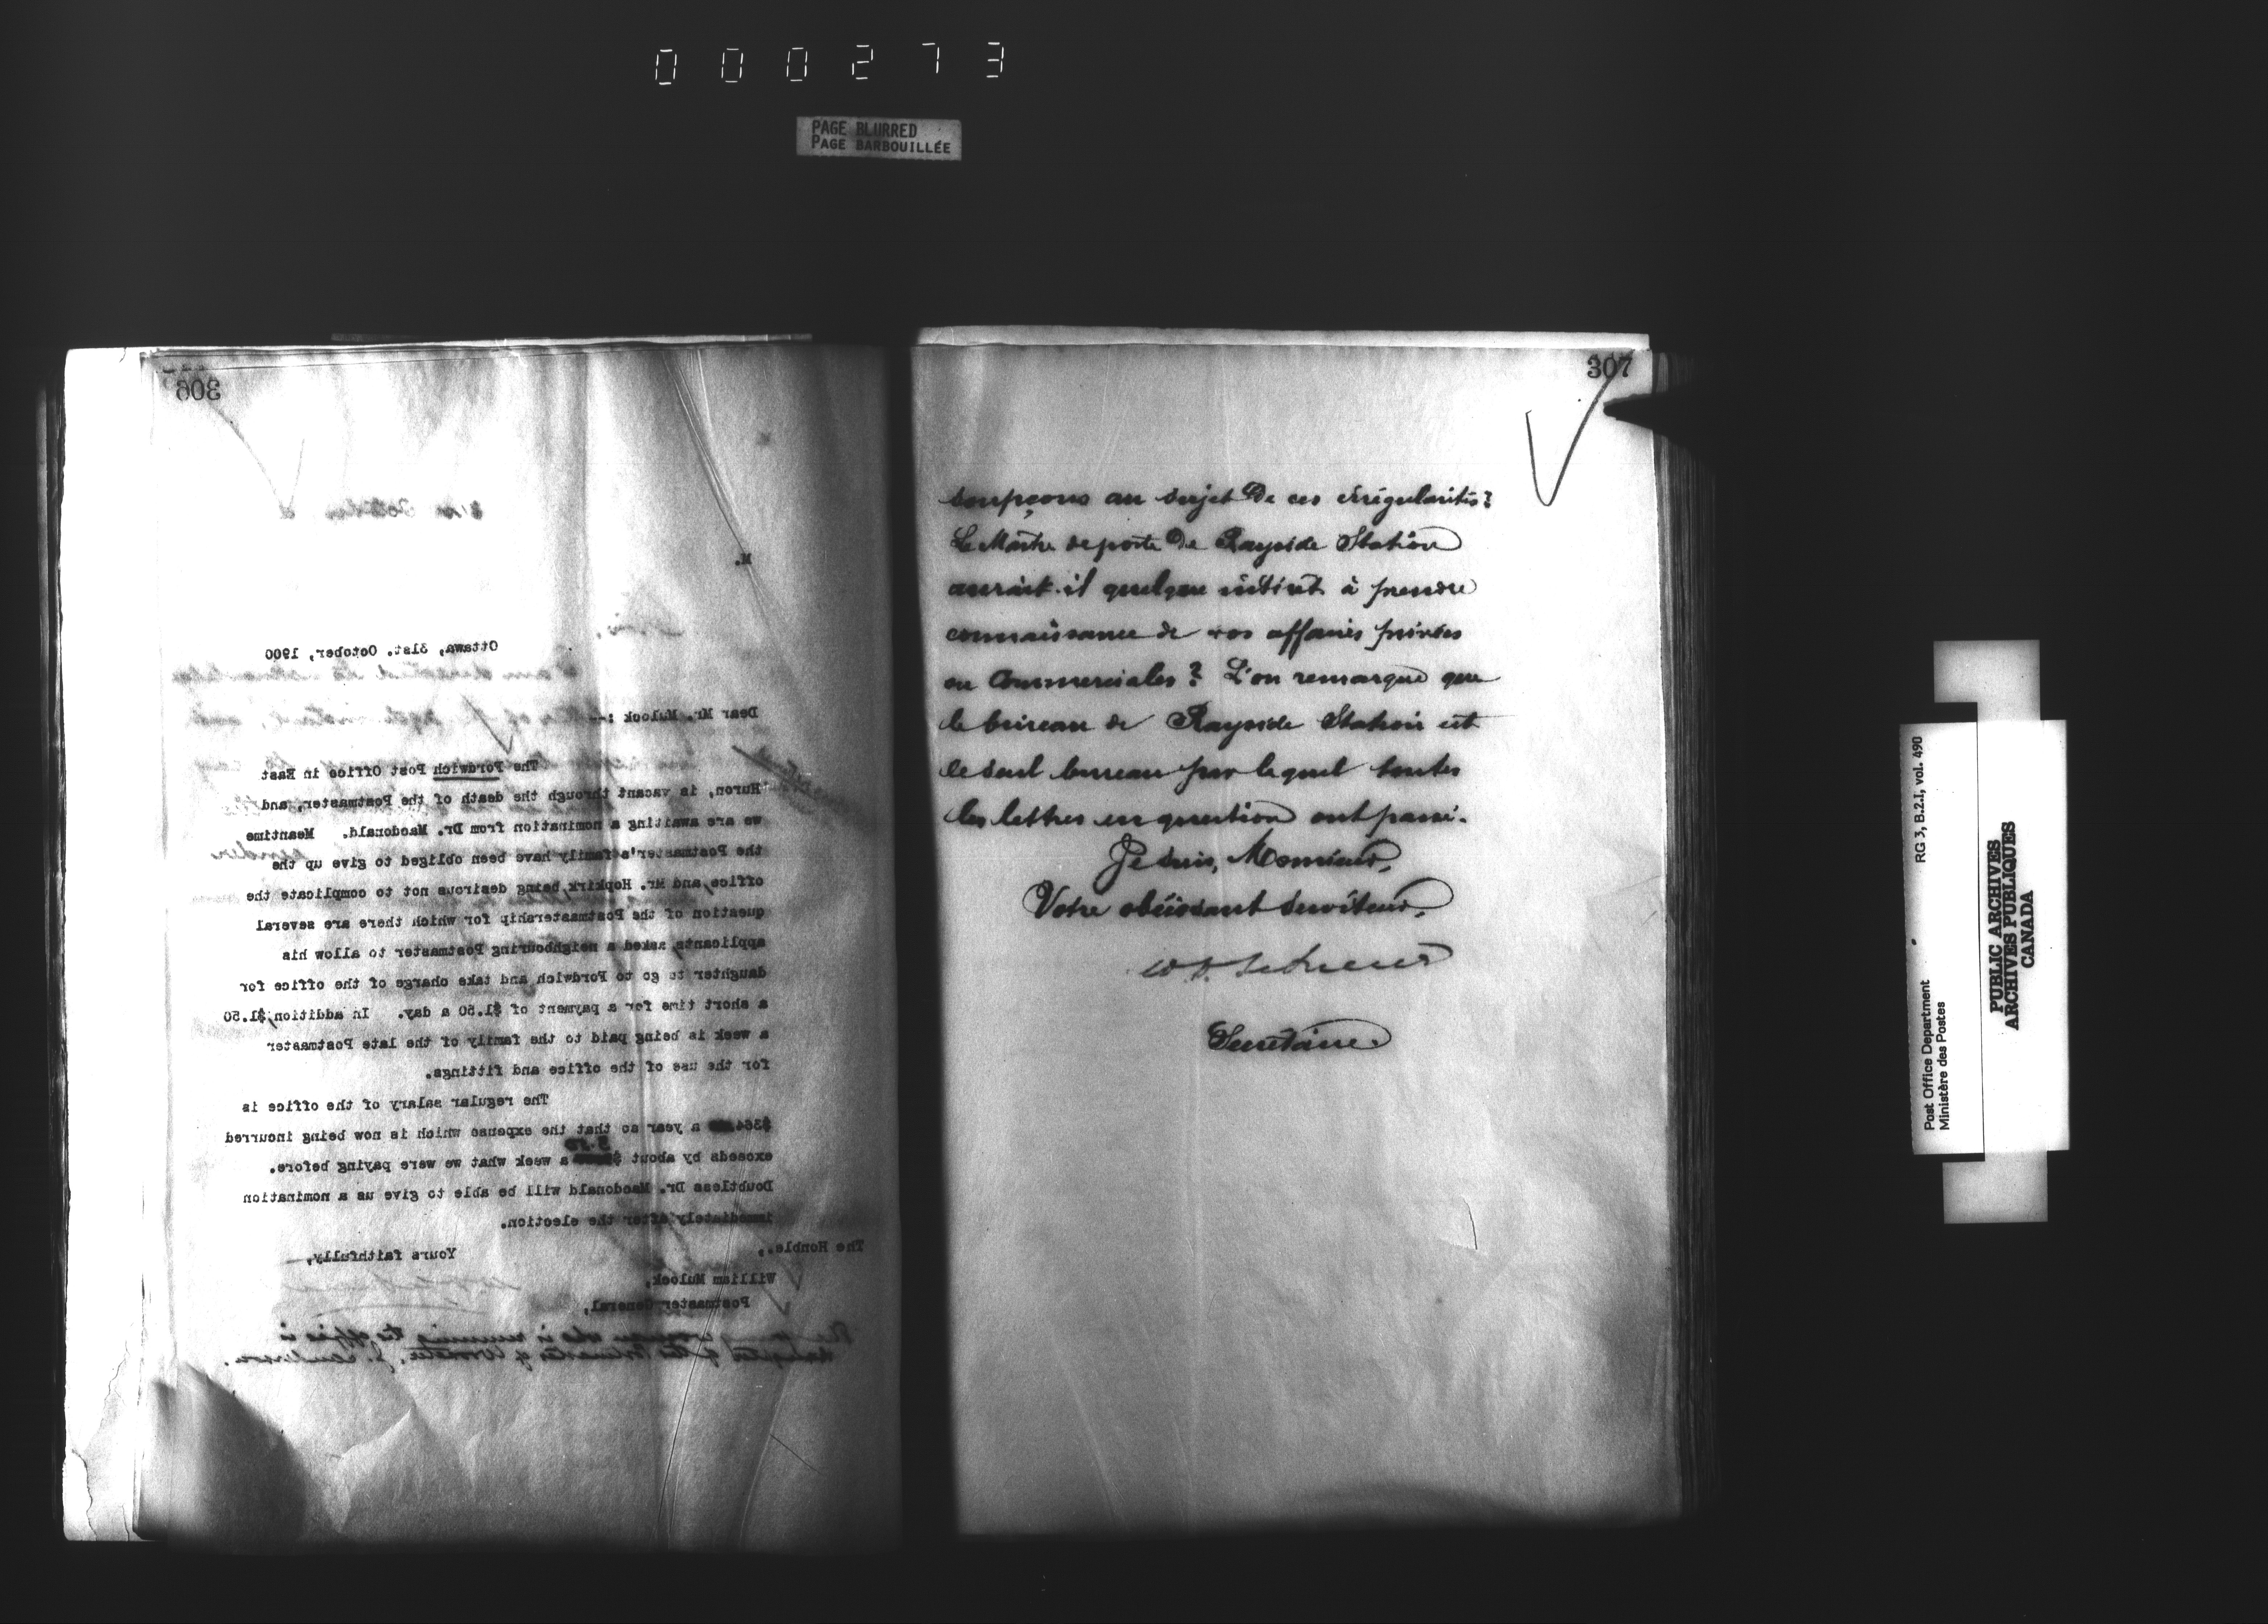 000273
PAGE BLURRED
PAGE BARBOUILLÉE
306
M.
Ottawa, 31st. October, 1900
Dear Mr. Mulock :--
The Fordwich Post Office in East
Huron, is vacant through the death of the Postmaster, and
we are awaiting a nomination from Dr. Macdonald. Meantime
the Postmaster's family have been obliged to give up the
office, and Mr. Hopkirk, being desirous not to complicate the
question of the Postmastership for which there are several
applicants, asked a neighbouring Postmaster to allow his
daughter to go to Fordwich and take charge of the office for
a short time for a payment of $1.50 a day. In addition, $1.50
a week is being paid to the family of the late Postmaster
for the use of the office and fittings.
The regular salary of the office is
$364 a year so that the expense which is now being incurred
exceeds by about $3.50 a week what we were paying before.
Doubtless Dr. Macdonald will be able to give us a nomination
immediately after the election.
Yours faithfully,
The Honble.,
William Mulock,
Postmaster General,
The young woman who is running the office is
daughter of the Postmaster of Wroxeter, J. Sanderson.
307
soupçons au sujet de ces irrégularités?
Le Maître de poste de Rayside Station
aurait-il quelque intérêt à prendre
connaissance de vos affaires privées
ou Commerciales? L'on remarque que
le bureau de Rayside Station est
le seul bureau par lequel toutes
les lettres en question ont passé.
Je suis, Monsieur,
Votre obéissant serviteur,
Secrétaire
Post Office Department
Ministère des Postes
RG 3, B.2.I, vol. 490
PUBLIC ARCHIVES
ARCHIVES PUBLIQUES
CANADA